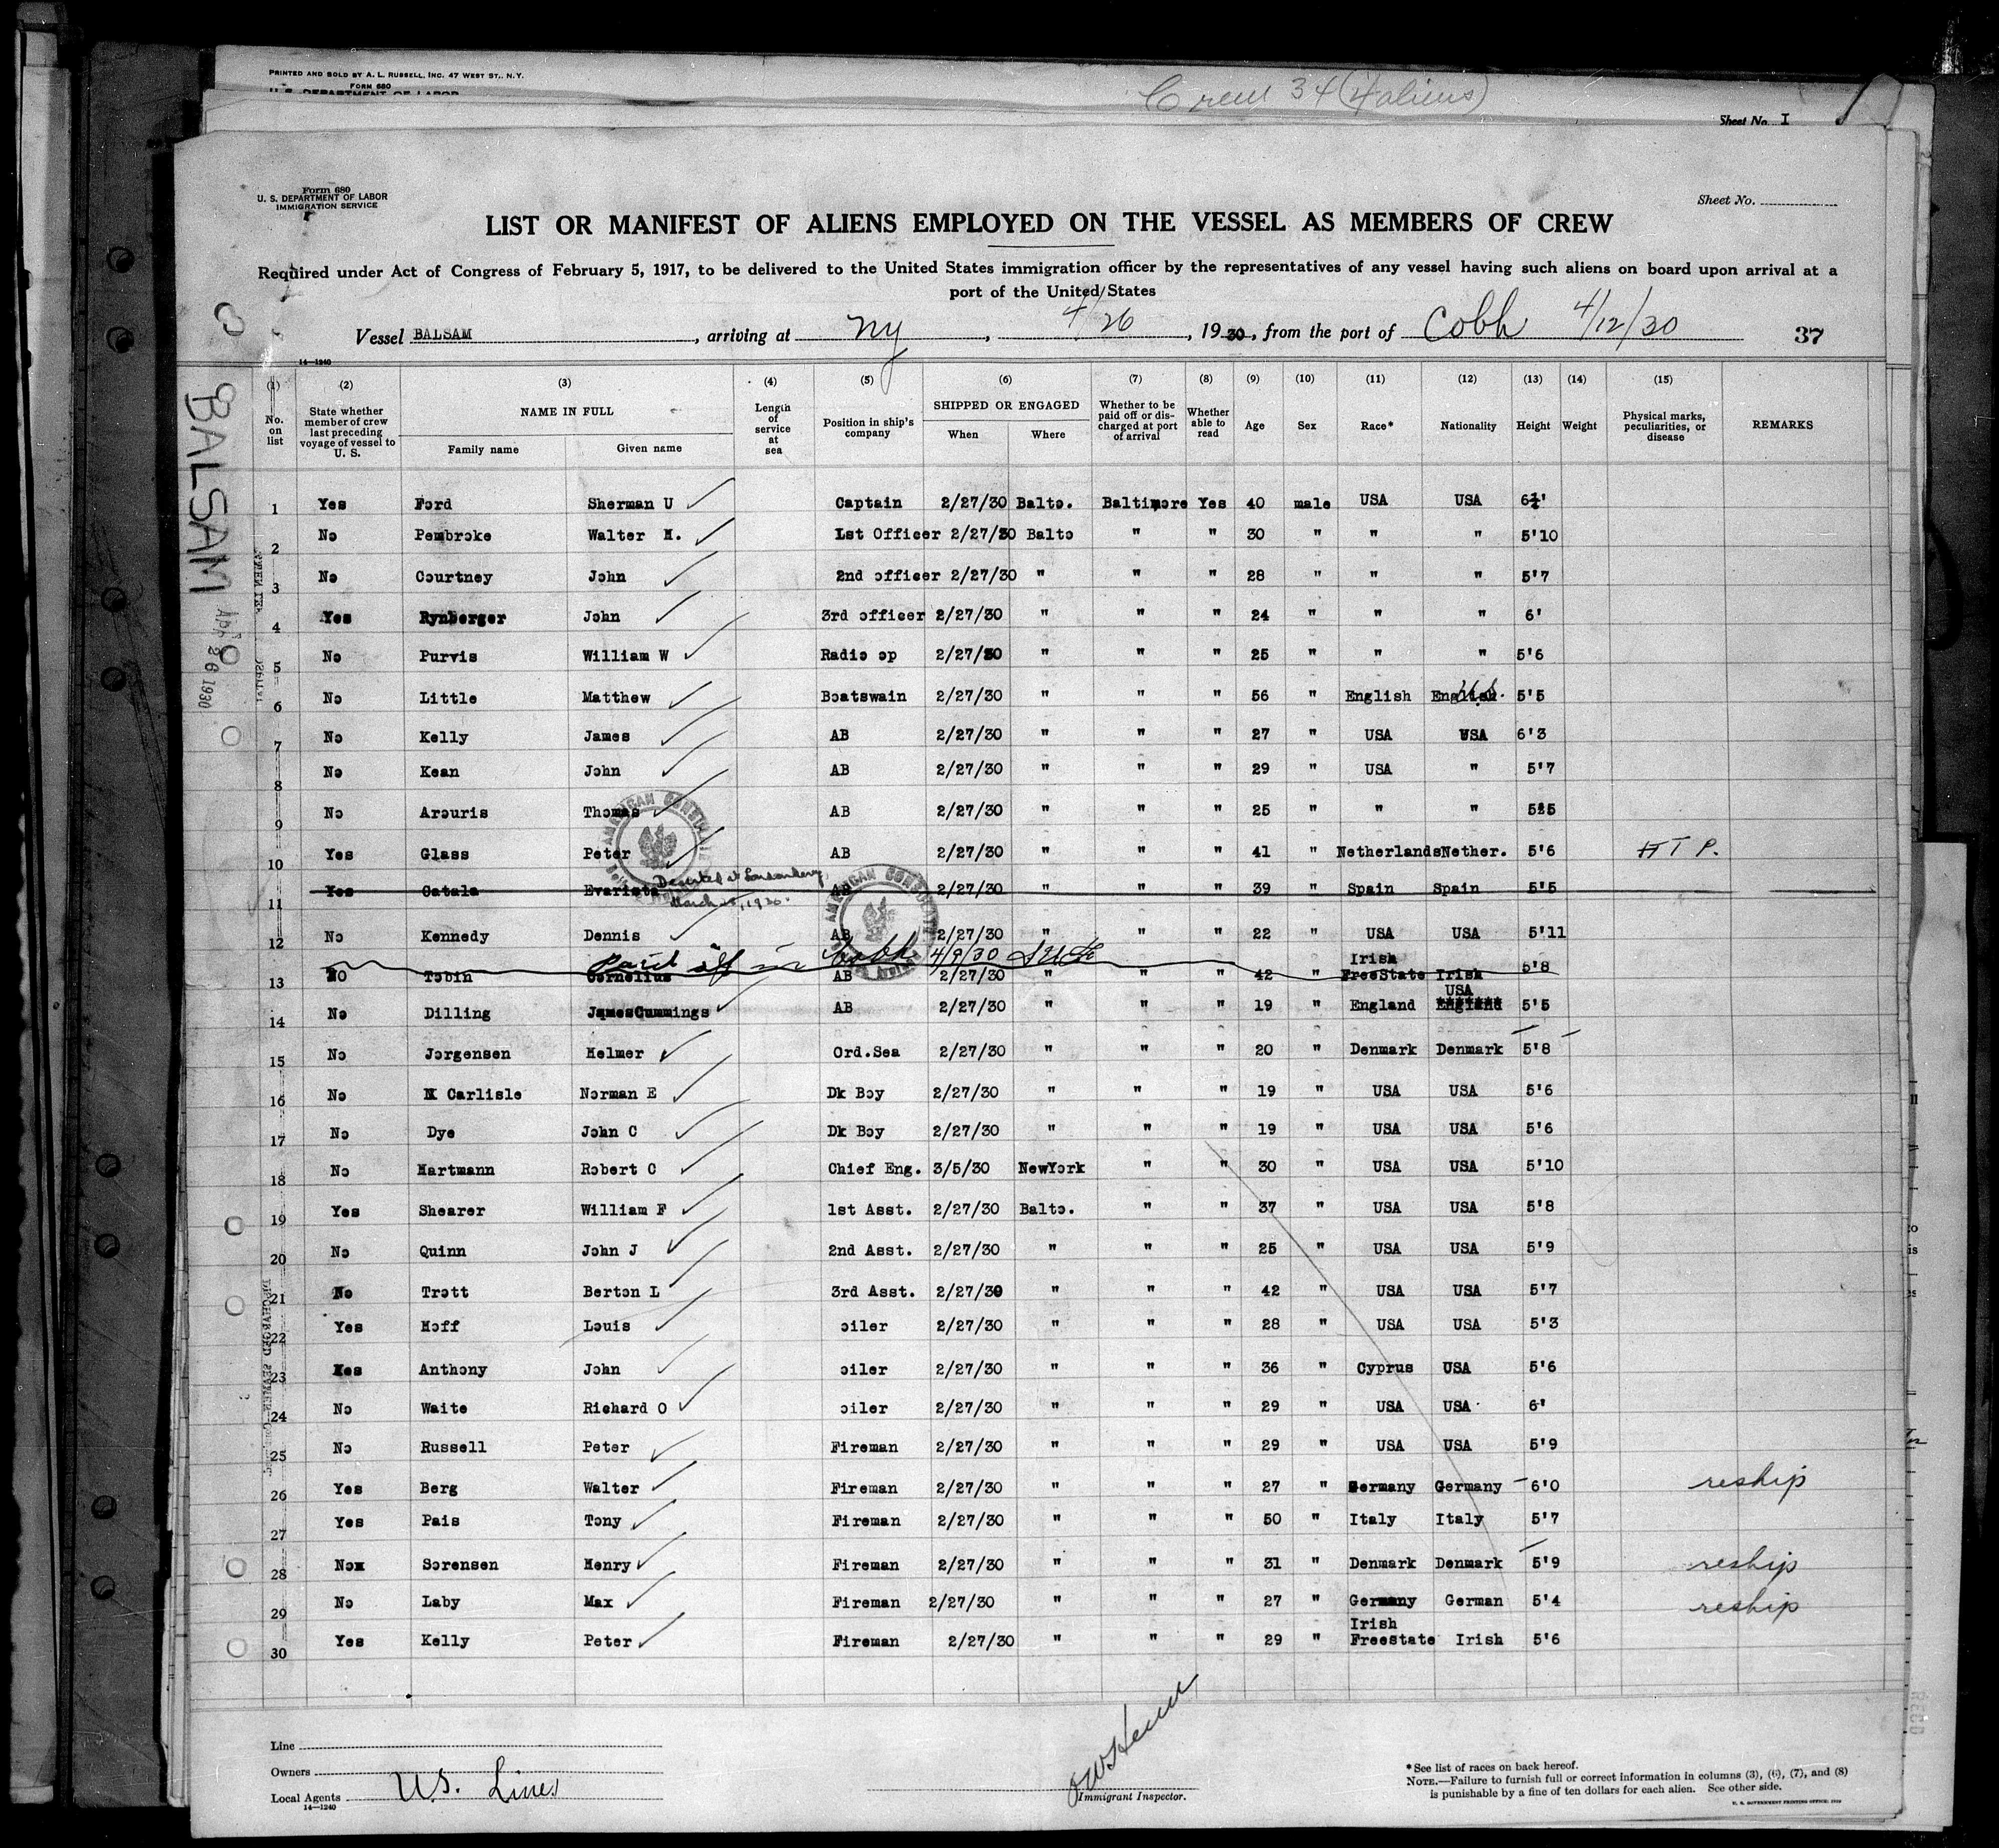 PRINTED AND SOLD BY A. L. RUSSELL, INC. 47 WEST ST., N.Y.
FORM 680
U. S. DEPARTMENT OF LABOR
Crew 34 (4 aliens)
Sheet No. I
Form 680
U. S. DEPARTMENT OF LABOR
IMMIGRATION SERVICE
Sheet No.
LIST OR MANIFEST OF ALIENS EMPLOYED ON THE VESSEL AS MEMBERS OF CREW
Required under Act of Congress of February 5, 1917, to be delivered to the United States immigration officer by the representatives of any vessel having such aliens on board upon arrival at a
port of the United States
Vessel BALSAM, arriving at NY, 4/26, 1930, from the port of Cobh 4/12/30 37
14—1240
BALSAM
Apr 26 1930
(1) (2) (3) (4) (5) (6) (7) (8) (9) (10) (11) (12) (13) (14) (15)
No. on list
State whether member of crew last preceding voyage of vessel to U. S.
NAME IN FULL
Family name Given name
Length of service at sea
Position in ship's company
SHIPPED OR ENGAGED
When Where
Whether to be paid off or discharged at port of arrival
Whether able to read
Age Sex Race* Nationality Height Weight
Physical marks, peculiarities, or disease
REMARKS
1 Yes Ford Sherman U Captain 2/27/30 Balto. Baltimore Yes 40 male USA USA 6½'
2 No Pembroke Walter H. 1st Officer 2/27/30 Balto " " 30 " " " 5'10
3 No Courtney John 2nd officer 2/27/30 " " " 28 " " " 5'7
4 Yes Rynberger John 3rd officer 2/27/30 " " " 24 " " " 6'
5 No Purvis William W Radio op 2/27/30 " " " 25 " " " 5'6
6 No Little Matthew Boatswain 2/27/30 " " " 56 " English English U.S. 5'5
7 No Kelly James AB 2/27/30 " " " 27 " USA USA 6'3
8 No Kean John AB 2/27/30 " " " 29 " USA " 5'7
9 No Arouris Thomas AB 2/27/30 " " " 25 " " " 5'5
10 Yes Glass Peter AB 2/27/30 " " " 41 " Netherlands Nether. 5'6 HTP.
AMERICAN CONSULATE
Deserted at Londonderry,
11 Yes Catala Evaristo AB 2/27/30 " " " 39 " Spain Spain 5'5
March 1930.
AMERICAN CONSULATE
12 No Kennedy Dennis AB 2/27/30 " " " 22 " USA USA 5'11
Paid off in Cobh 4/9/30
13 NO Tobin Cornelius AB 2/27/30 " " " 42 " Irish FreeState Irish 5'8
14 No Dilling JamesCummings AB 2/27/30 " " " 19 " England USA England 5'5
15 No Jorgensen Helmer Ord.Sea 2/27/30 " " " 20 " Denmark Denmark 5'8
16 No Carlisle Norman E Dk Boy 2/27/30 " " " 19 " USA USA 5'6
17 No Dye John C Dk Boy 2/27/30 " " " 19 " USA USA 5'6
18 No Hartmann Robert C Chief Eng. 3/5/30 NewYork " " 30 " USA USA 5'10
19 Yes Shearer William F 1st Asst. 2/27/30 Balto. " " 37 " USA USA 5'8
20 No Quinn John J 2nd Asst. 2/27/30 " " " 25 " USA USA 5'9
21 No Trott Berton L 3rd Asst. 2/27/30 " " " 42 " USA USA 5'7
22 Yes Hoff Louis oiler 2/27/30 " " " 28 " USA USA 5'3
23 Yes Anthony John oiler 2/27/30 " " " 36 " Cyprus USA 5'6
24 No Waite Richard O oiler 2/27/30 " " " 29 " USA USA 6'
25 No Russell Peter Fireman 2/27/30 " " " 29 " USA USA 5'9
26 Yes Berg Walter Fireman 2/27/30 " " " 27 " Germany Germany 6'0 reship
27 Yes Pais Tony Fireman 2/27/30 " " " 50 " Italy Italy 5'7
28 Nox Sorensen Henry Fireman 2/27/30 " " " 31 " Denmark Denmark 5'9 reship
29 No Laby Max Fireman 2/27/30 " " " 27 " Germany German 5'4 reship
30 Yes Kelly Peter Fireman 2/27/30 " " " 29 " Irish Freestate Irish 5'6
Line
Owners
Local Agents U.S. Lines
14—1240
Immigrant Inspector.
*See list of races on back hereof.
NOTE.—Failure to furnish full or correct information in columns (3), (6), (7), and (8)
is punishable by a fine of ten dollars for each alien. See other side.